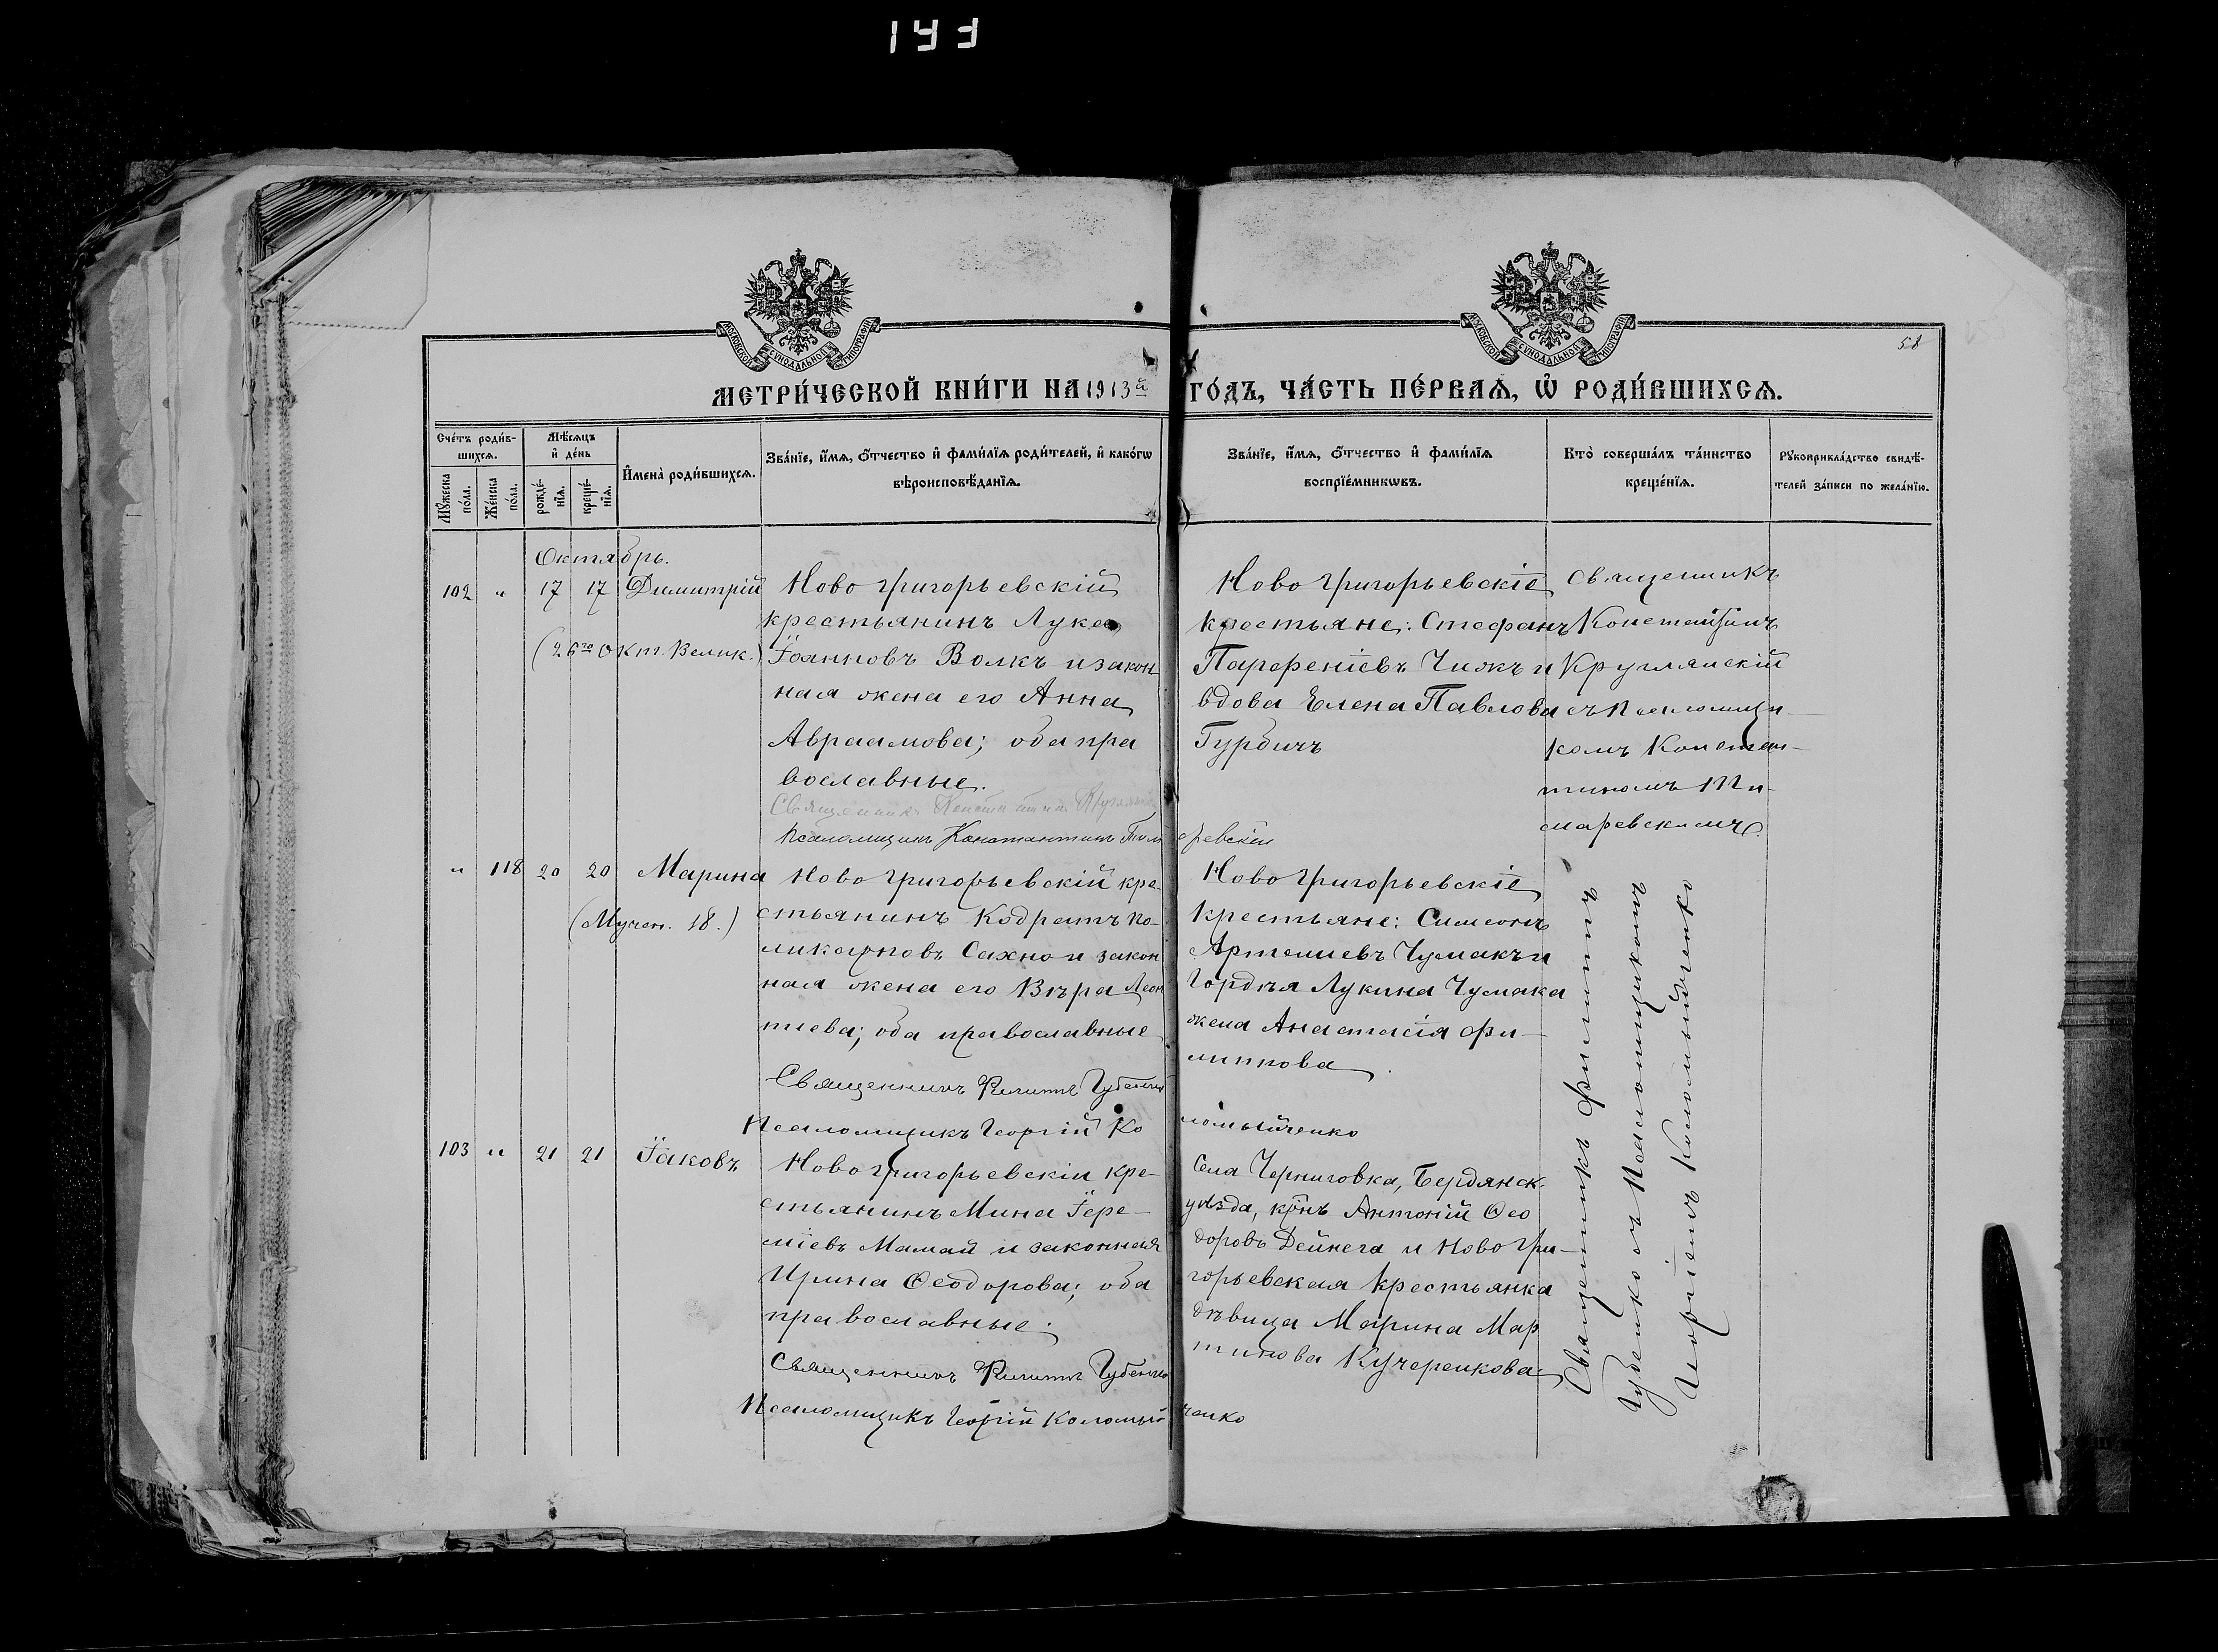 143
58
МОСКОВСКОЙ СѴНОДАЛЬНОЙ ТИПОГРАФІИ
МОСКОВСКОЙ СѴНОДАЛЬНОЙ ТИПОГРАФІИ
МЕТРИ́ЧЕСКОЙ КНИ́ГИ НА 1913й ГО́ДЪ, ЧА́СТЬ ПЕ́РВАѦ, Ѡ҆ РОДИ́ВШИХСѦ.
Сче́тъ роди́в-
шихсѧ.
Мꙋ́жеска по́ла.
Же́нска по́ла.
Мѣ́сѧцъ
и҆ де́нь
рожде́-
нїѧ.
креще́-
нїѧ.
И҆мена̀ роди́вшихсѧ.
Зва́нїе, и҆́мѧ, ѻ҆́тчество и҆ фами́лїѧ роди́телей, и҆ како́гѡ
вѣроисповѣ́данїѧ.
Зва́нїе, и҆́мѧ, ѻ҆́тчество и҆ фами́лїѧ
воспрїе́мникѡвъ.
Кто̀ соверша́лъ та́инство
креще́нїѧ.
Рꙋкоприкла́дство свидѣ́-
телей за́писи по жела́нїю.
Октябрь.
102 " 17 17 Димитрій
(26го Окт. Велик.)
Ново Григорьевскій
крестьянинъ Лука
Іоанновъ Волкъ и закон
ная жена его Анна
Авраамова; оба пра
вославные.
Священникъ Константинъ
Псаломщикъ Константинъ Тимаревскій
Ново Григорьевскіе
крестьяне: Стефанъ
Парфеніевъ Чижъ и
вдова Елена Павлова
Гурбичъ
Священникъ
Константинъ
Круглянскій
съ Псаломщи-
комъ Констан-
тиномъ Ти-
маревскимъ.
" 118 20 20 Марина
(Мучен. 18.)
Ново Григорьевскій кре-
стьянинъ Кодратъ По-
ликарповъ Сахно и закон
ная жена его Вѣра Леон
тиева; оба православные
Священникъ Филиппъ Губенко
Псаломщикъ Георгій Коломыйченко
Ново Григорьевскіе
крестьяне: Симеонъ
Артемиевъ Чумакъ и
Гордѣя Лукина Чумака
жена Анастасія Фи-
липпова
Священникъ Филиппъ
Губенко съ Псаломщикомъ
Георгіемъ Коломыйченко
103 " 21 21 Іаковъ
Ново Григорьевскій кре-
стьянинъ Мина Іере-
міевъ Мамай и законная
Ирина Ѳеодорова; оба
православные.
Священникъ Филиппъ Губенко
Псаломщикъ Георгій Коломыйченко
Села Черниговка, Бердянск.
уѣзда, кр-нъ Антоній Ѳео
доровъ Дейнега и Ново Гри-
горьевская крестьянка
дѣвица Марина Мар
тинова Кучеренкова